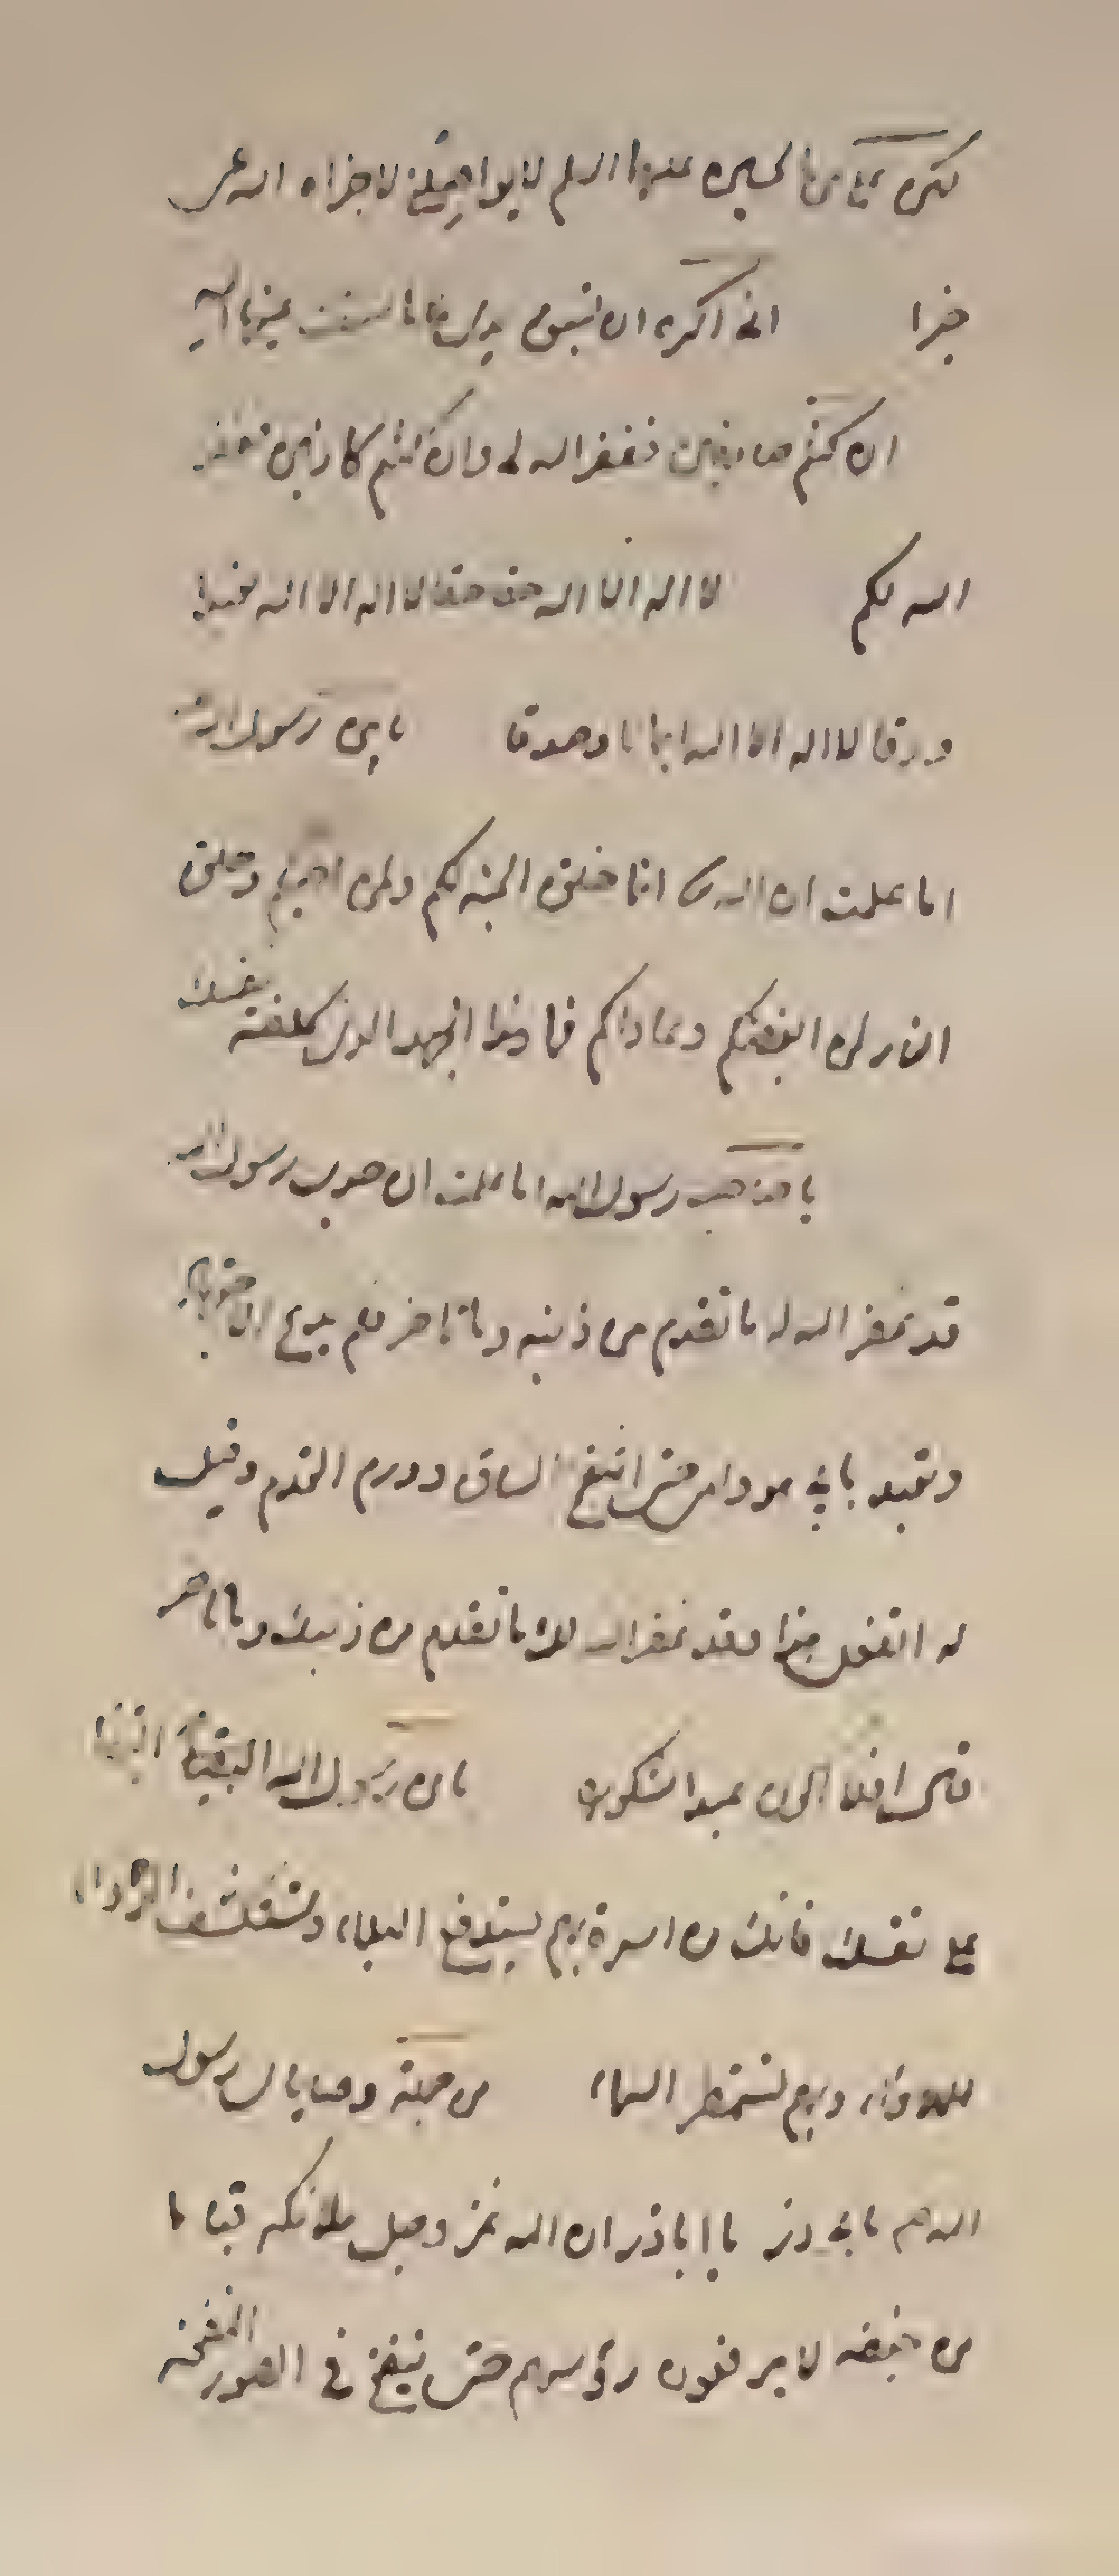 علي بن الحسين عليهما السلم لا جزاه الله عن
خيرا اني اكره ان
ان كنتم صادقين فغفر الله لي وان كنتم كاذبين فغفر
الله لكم لا اله الا الله حقا حقا لا اله الا الله تعبدا
ورقا لا اله الا الله ايمانا وصدقا يابن رسول الله
اما علمت ان الله انما خلق الجنة لكم ولمن احبكم وخلق
النار لمن ابغضكم وعاداكم فما هذا الجهد الذي كلفته نفسك
يا صاحب رسول الله اما علمت ان جدي رسول الله
قد غفر الله له ما تقدم من ذنبه وما تاخر فلم يدع الاجتهاد
وتعبد بابي هو وامي حتى انتفخ الساق وورم القدم وقيل
له اتفعل هذا وقد غفر الله لك ما تقدم من ذنبك وما تاخر
قال افلا اكون عبدا شكورا يابن رسول الله البقيا البقيا
على نفسك فانك من اسرة بهم يستدفع البلاء وتستكشف
اللاواء وبهم تستمطر السماء من جملة وصايا رسول
الله لابي ذر يا ابا ذر ان الله عز وجل ملائكه قياما
من خيفته لا يرفعون رؤسهم حتى ينفخ في الصور النفخه